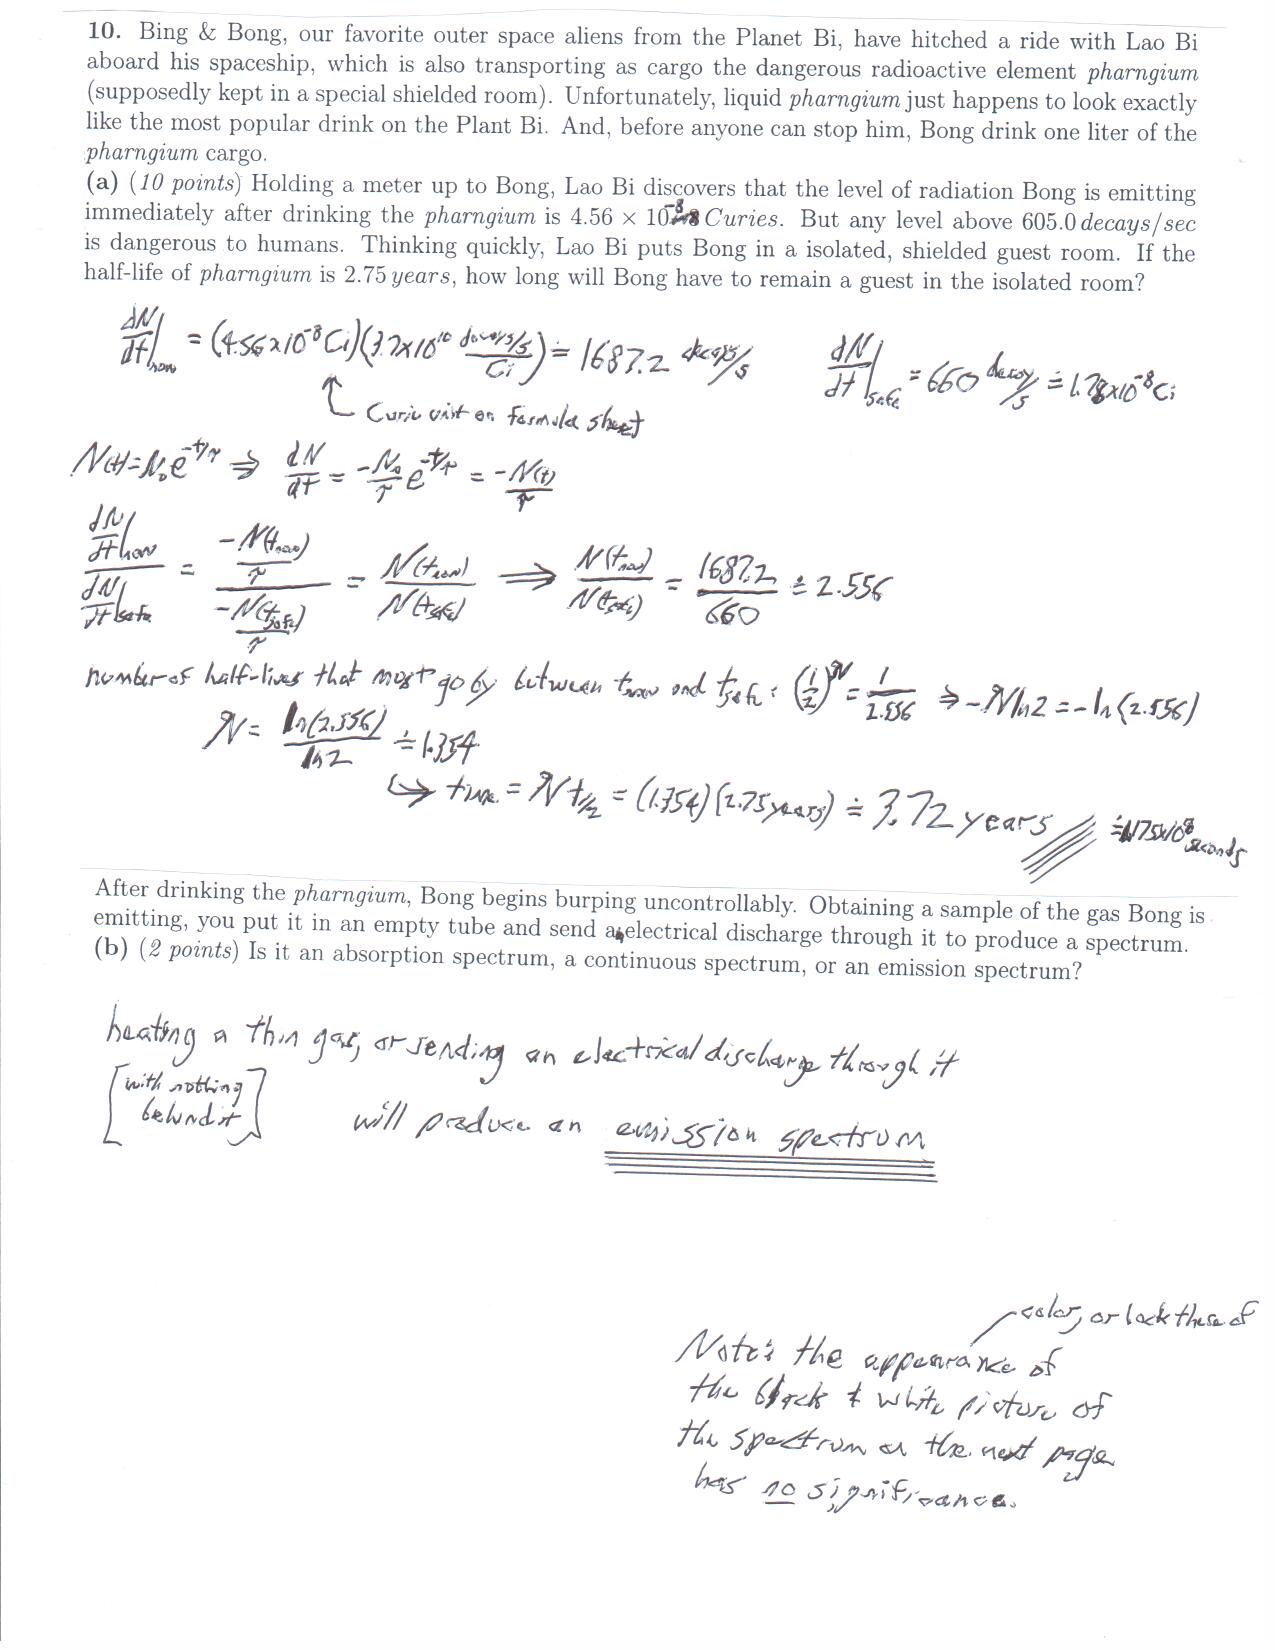 10. Bing & Bong, our favorite outer space aliens from the Planet Bi, have hitched a ride with Lao Bi
aboard his spaceship, which is also transporting as cargo the dangerous radioactive element pharngium
(supposedly kept in a special shielded room). Unfortunately, liquid pharngium just happens to look exactly
like the most popular drink on the Plant Bi. And, before anyone can stop him, Bong drink one liter of the
pharngium cargo.
(a) (10 points) Holding a meter up to Bong, Lao Bi discovers that the level of radiation Bong is emitting
immediately after drinking the pharngium is 4.56 × 10^-8 Curies. But any level above 605.0 decays/sec
is dangerous to humans. Thinking quickly, Lao Bi puts Bong in a isolated, shielded guest room. If the
half-life of pharngium is 2.75 years, how long will Bong have to remain a guest in the isolated room?
dN/dt|now = (4.56x10^-8 Ci)(3.7x10^10 decays/s/Ci) ≐ 1687.2 decays/s
dN/dt|safe = 660 decay/s ≐ 1.78x10^-8 Ci
↑ Curie unit on formula sheet
N(t)=N₀e^-t/τ ⇒ dN/dt = -N₀/τ e^-t/τ = -N(t)/τ
dN/dt|now / dN/dt|safe = (-N(tnow)/τ) / (-N(tsafe)/τ) = N(tnow)/N(tsafe) ⇒ N(tnow)/N(tsafe) = 1687.2/660 ≐ 2.556
number of half-lives that must go by between tnow and tsafe: (1/2)^N = 1/2.556 ⇒ -N ln2 = -ln(2.556)
N = ln(2.556)/ln2 ≐ 1.354
↪ time = N t1/2 = (1.354)(2.75 years) ≐ 3.72 years ≐ 1.175x10^8 seconds
After drinking the pharngium, Bong begins burping uncontrollably. Obtaining a sample of the gas Bong is
emitting, you put it in an empty tube and send an electrical discharge through it to produce a spectrum.
(b) (2 points) Is it an absorption spectrum, a continuous spectrum, or an emission spectrum?
heating a thin gas, or sending an electrical discharge through it
[with nothing
behind it]
will produce an emission spectrum
color, or lack there of
Note: the appearance of
the black & white picture of
the spectrum on the next page
has no significance.